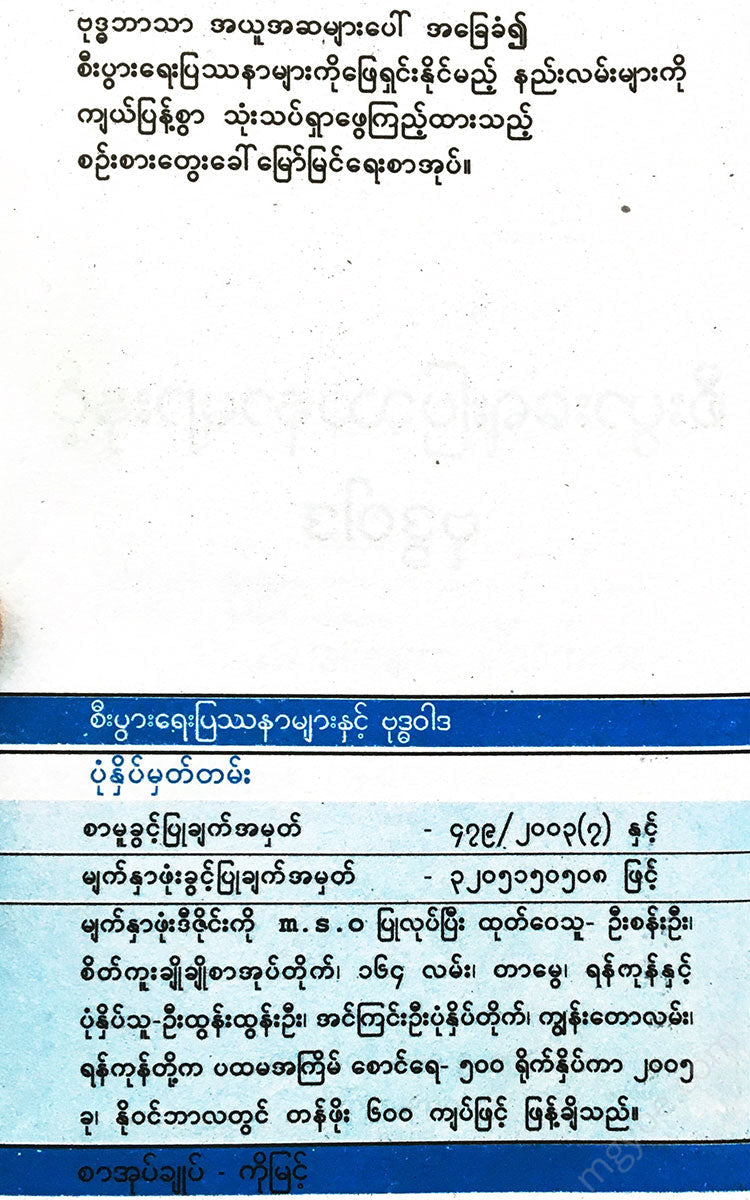 ဗုဒ္ဓဘာသာ အယူအဆများပေါ် အခြေခံ၍
စီးပွားရေးပြဿနာများကိုဖြေရှင်းနိုင်မည့် နည်းလမ်းများကို
ကျယ်ပြန့်စွာ သုံးသပ်ရှာဖွေကြည့်ထားသည့်
စဉ်းစားတွေးခေါ် မြော်မြင်ရေးစာအုပ်။
စီးပွားရေးပြဿနာများနှင့် ဗုဒ္ဓဝါဒ
ပုံနှိပ်မှတ်တမ်း
စာမူခွင့်ပြုချက်အမှတ် - ၄၇၉/၂၀၀၃(၇) နှင့်
မျက်နှာဖုံးခွင့်ပြုချက်အမှတ် - ၃၂၀၅၁၅၀၅၀၈ ဖြင့်
မျက်နှာဖုံးဒီဇိုင်းကို m.s.o ပြုလုပ်ပြီး ထုတ်ဝေသူ- ဦးစန်းဦး၊
စိတ်ကူးချိုချိုစာအုပ်တိုက်၊ ၁၆၄ လမ်း၊ တာမွေ၊ ရန်ကုန်နှင့်
ပုံနှိပ်သူ-ဦးထွန်းထွန်းဦး၊ အင်ကြင်းဦးပုံနှိပ်တိုက်၊ ကျွန်းတောလမ်း၊
ရန်ကုန်တို့က ပထမအကြိမ် စောင်ရေ- ၅၀၀ ရိုက်နှိပ်ကာ ၂၀၀၅
ခု၊ နိုဝင်ဘာလတွင် တန်ဖိုး ၆၀၀ ကျပ်ဖြင့် ဖြန့်ချိသည်။
စာအုပ်ချုပ် - ကိုမြင့်